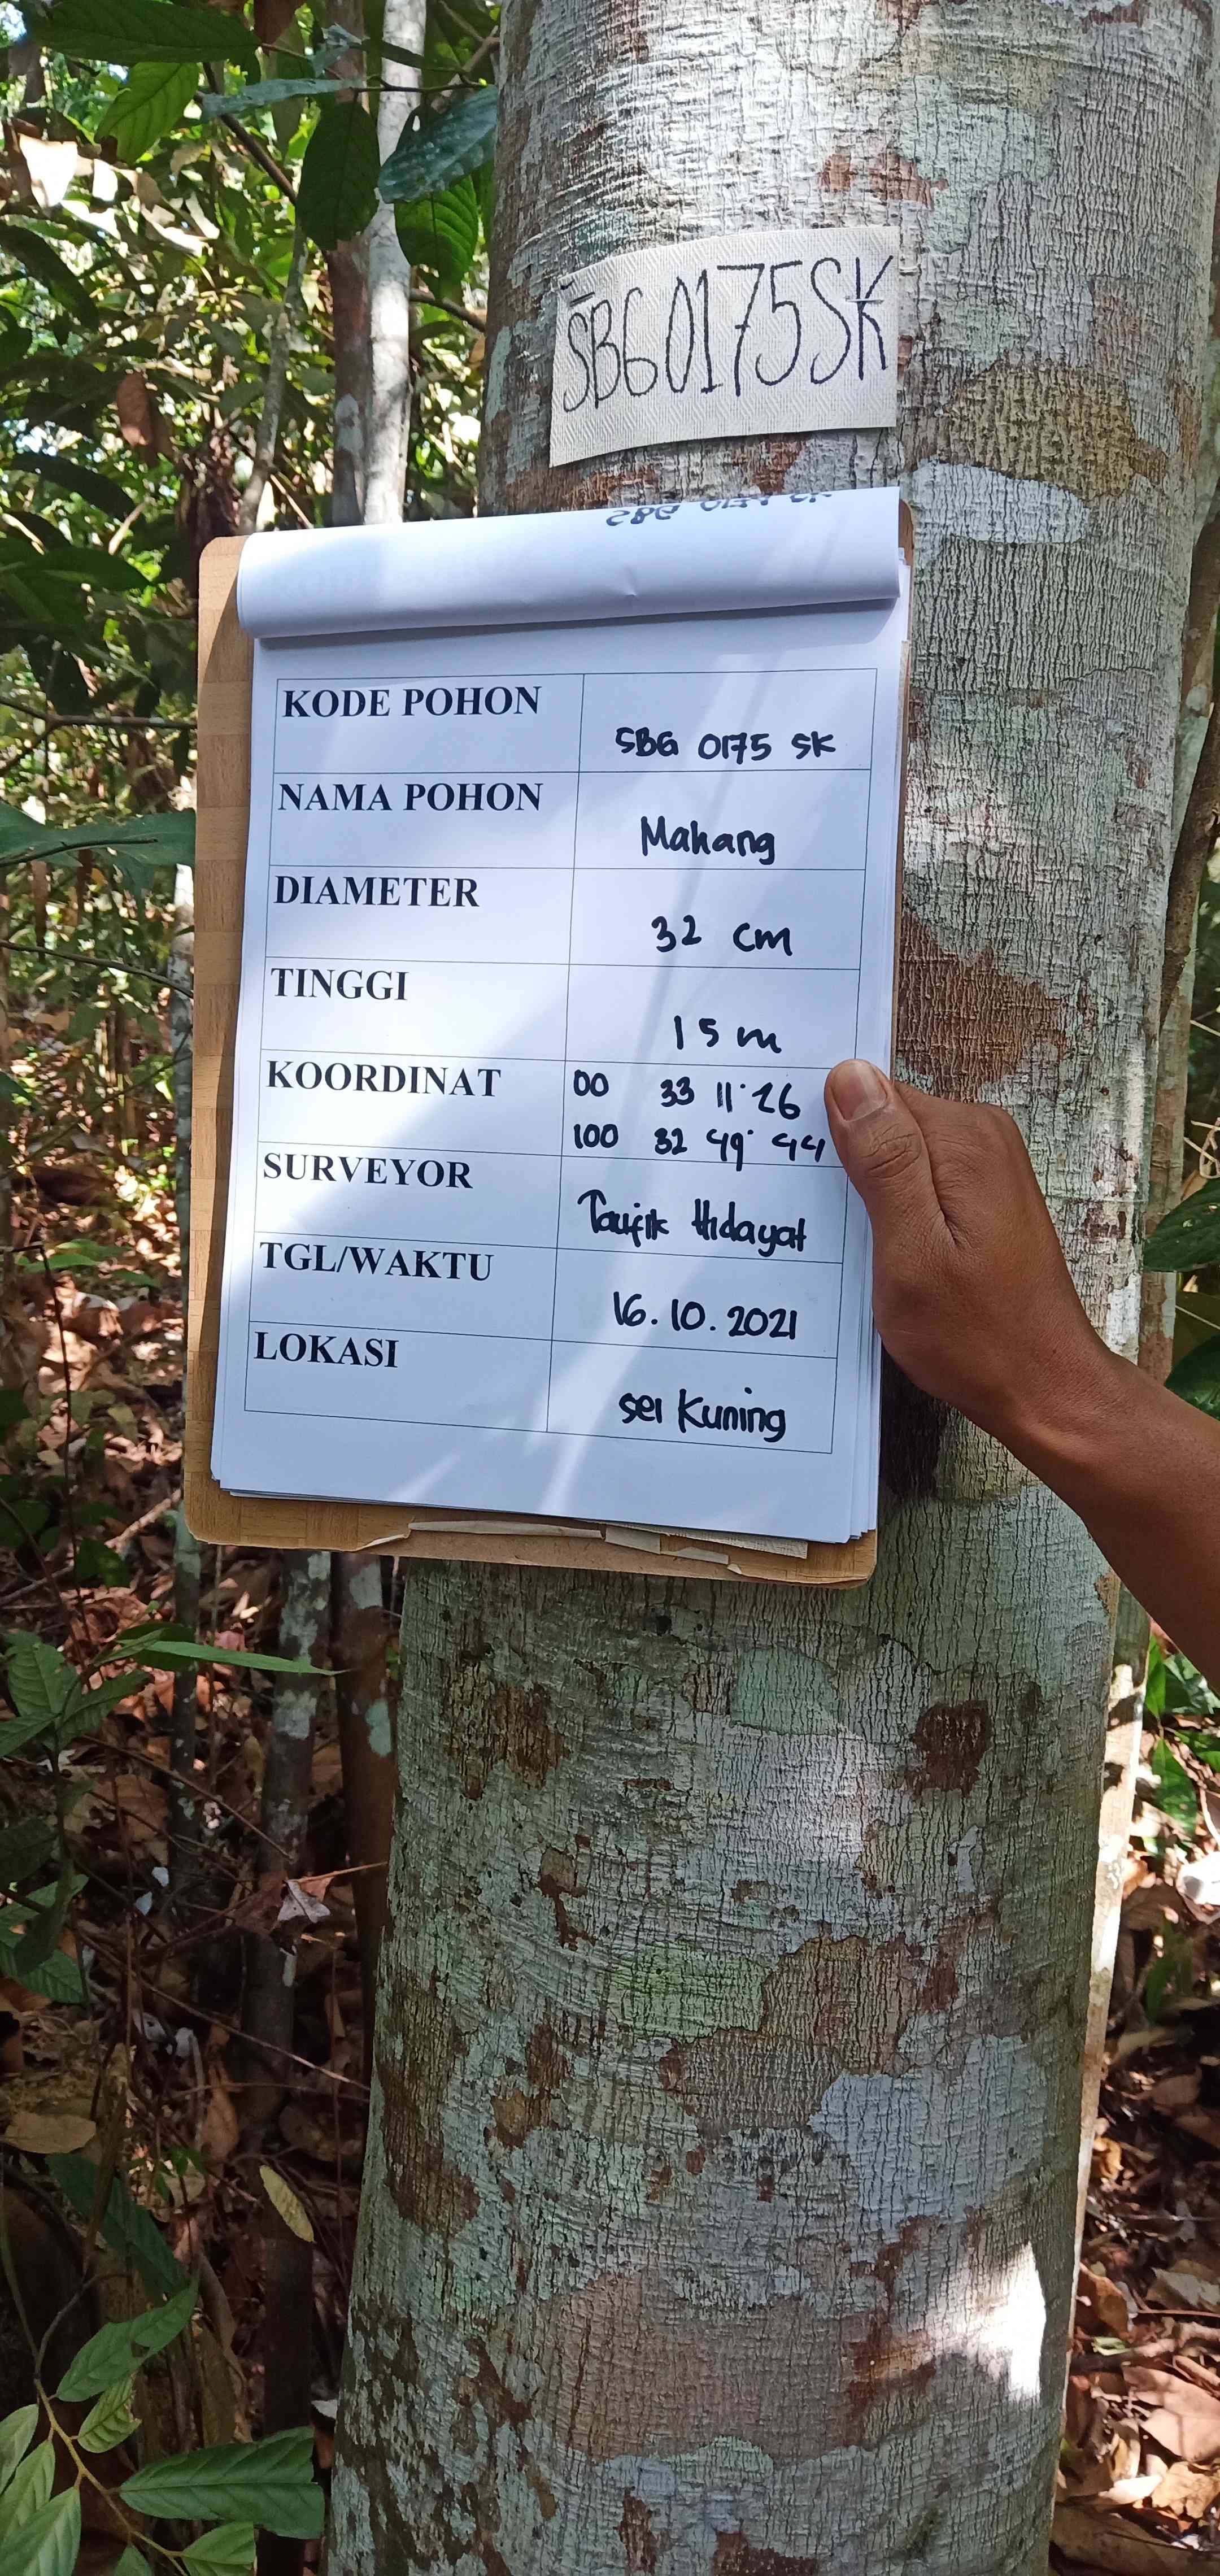 SBG0175SK
KODE POHON
SBG 0175 SK
NAMA POHON
Mahang
DIAMETER
32 cm
TINGGI
15 m
KOORDINAT
00 33 11.26
100 32 49.44
SURVEYOR
Taufik Hidayat
TGL/WAKTU
16.10.2021
LOKASI
Sei Kuning